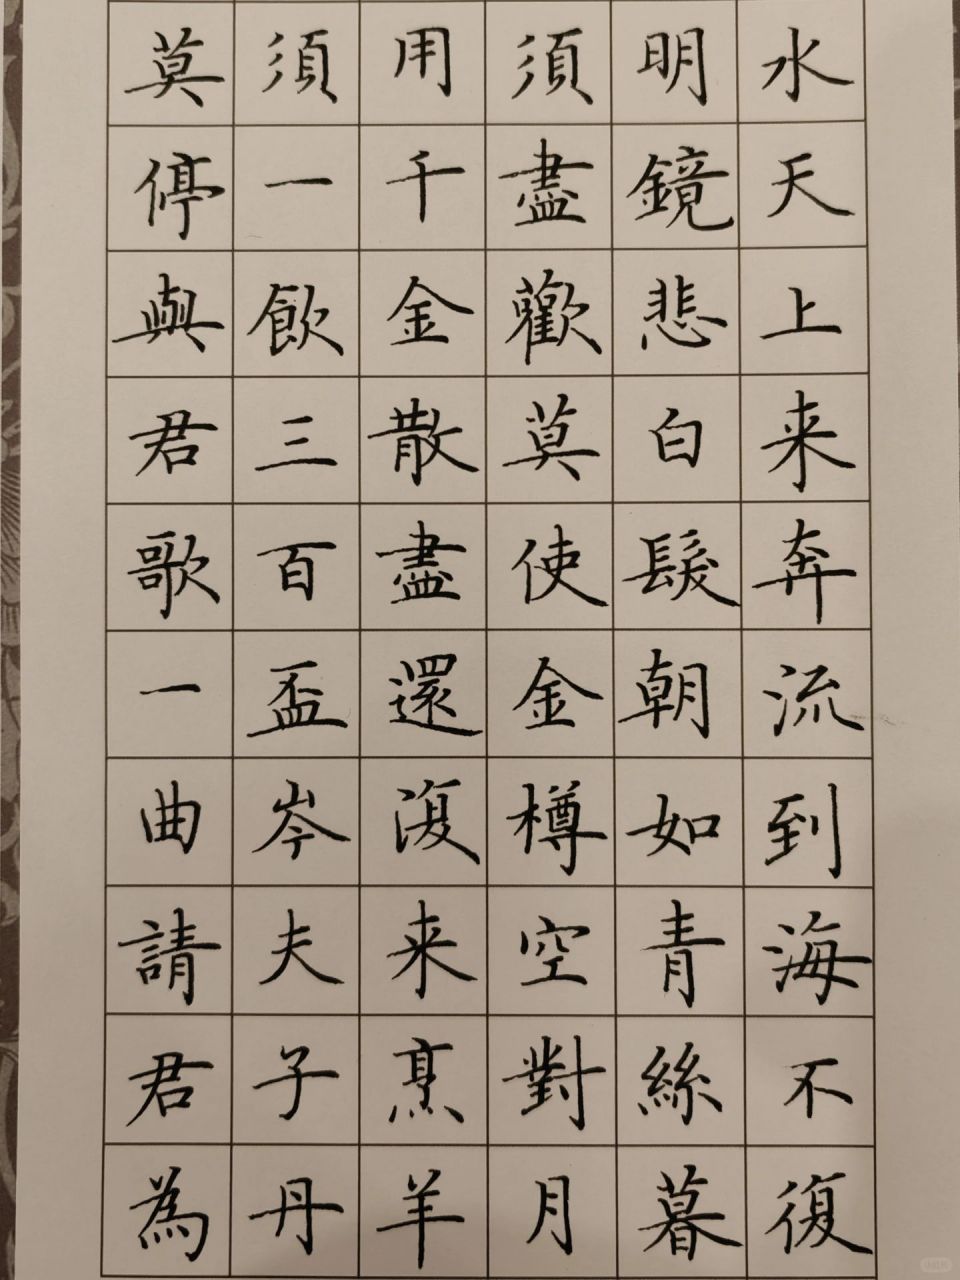 水天上来奔流到海不復
明鏡悲白髮朝如青絲暮
須盡歡莫使金樽空對月
用千金散盡還復来烹羊
須一飲三百盃岑夫子丹
莫停與君歌一曲請君為